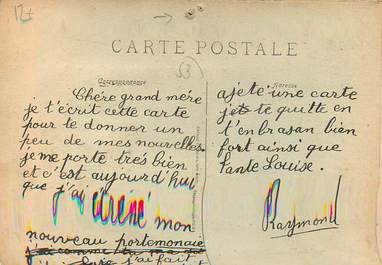 12+
CARTE POSTALE
53
Correspondance
Chére grand mére
je t'écrit cette carte
pour le donner un
peu de mes nouvelles.
je me porte trés bien
et c'est aujourd'hui
que j'ai étrené mon
nouveau portemonaie
j'ai fait
Adresse
ajeté une carte
je te quitte en
t'enbrasan bien
fort ainsi que
tante Louise.
Raymond